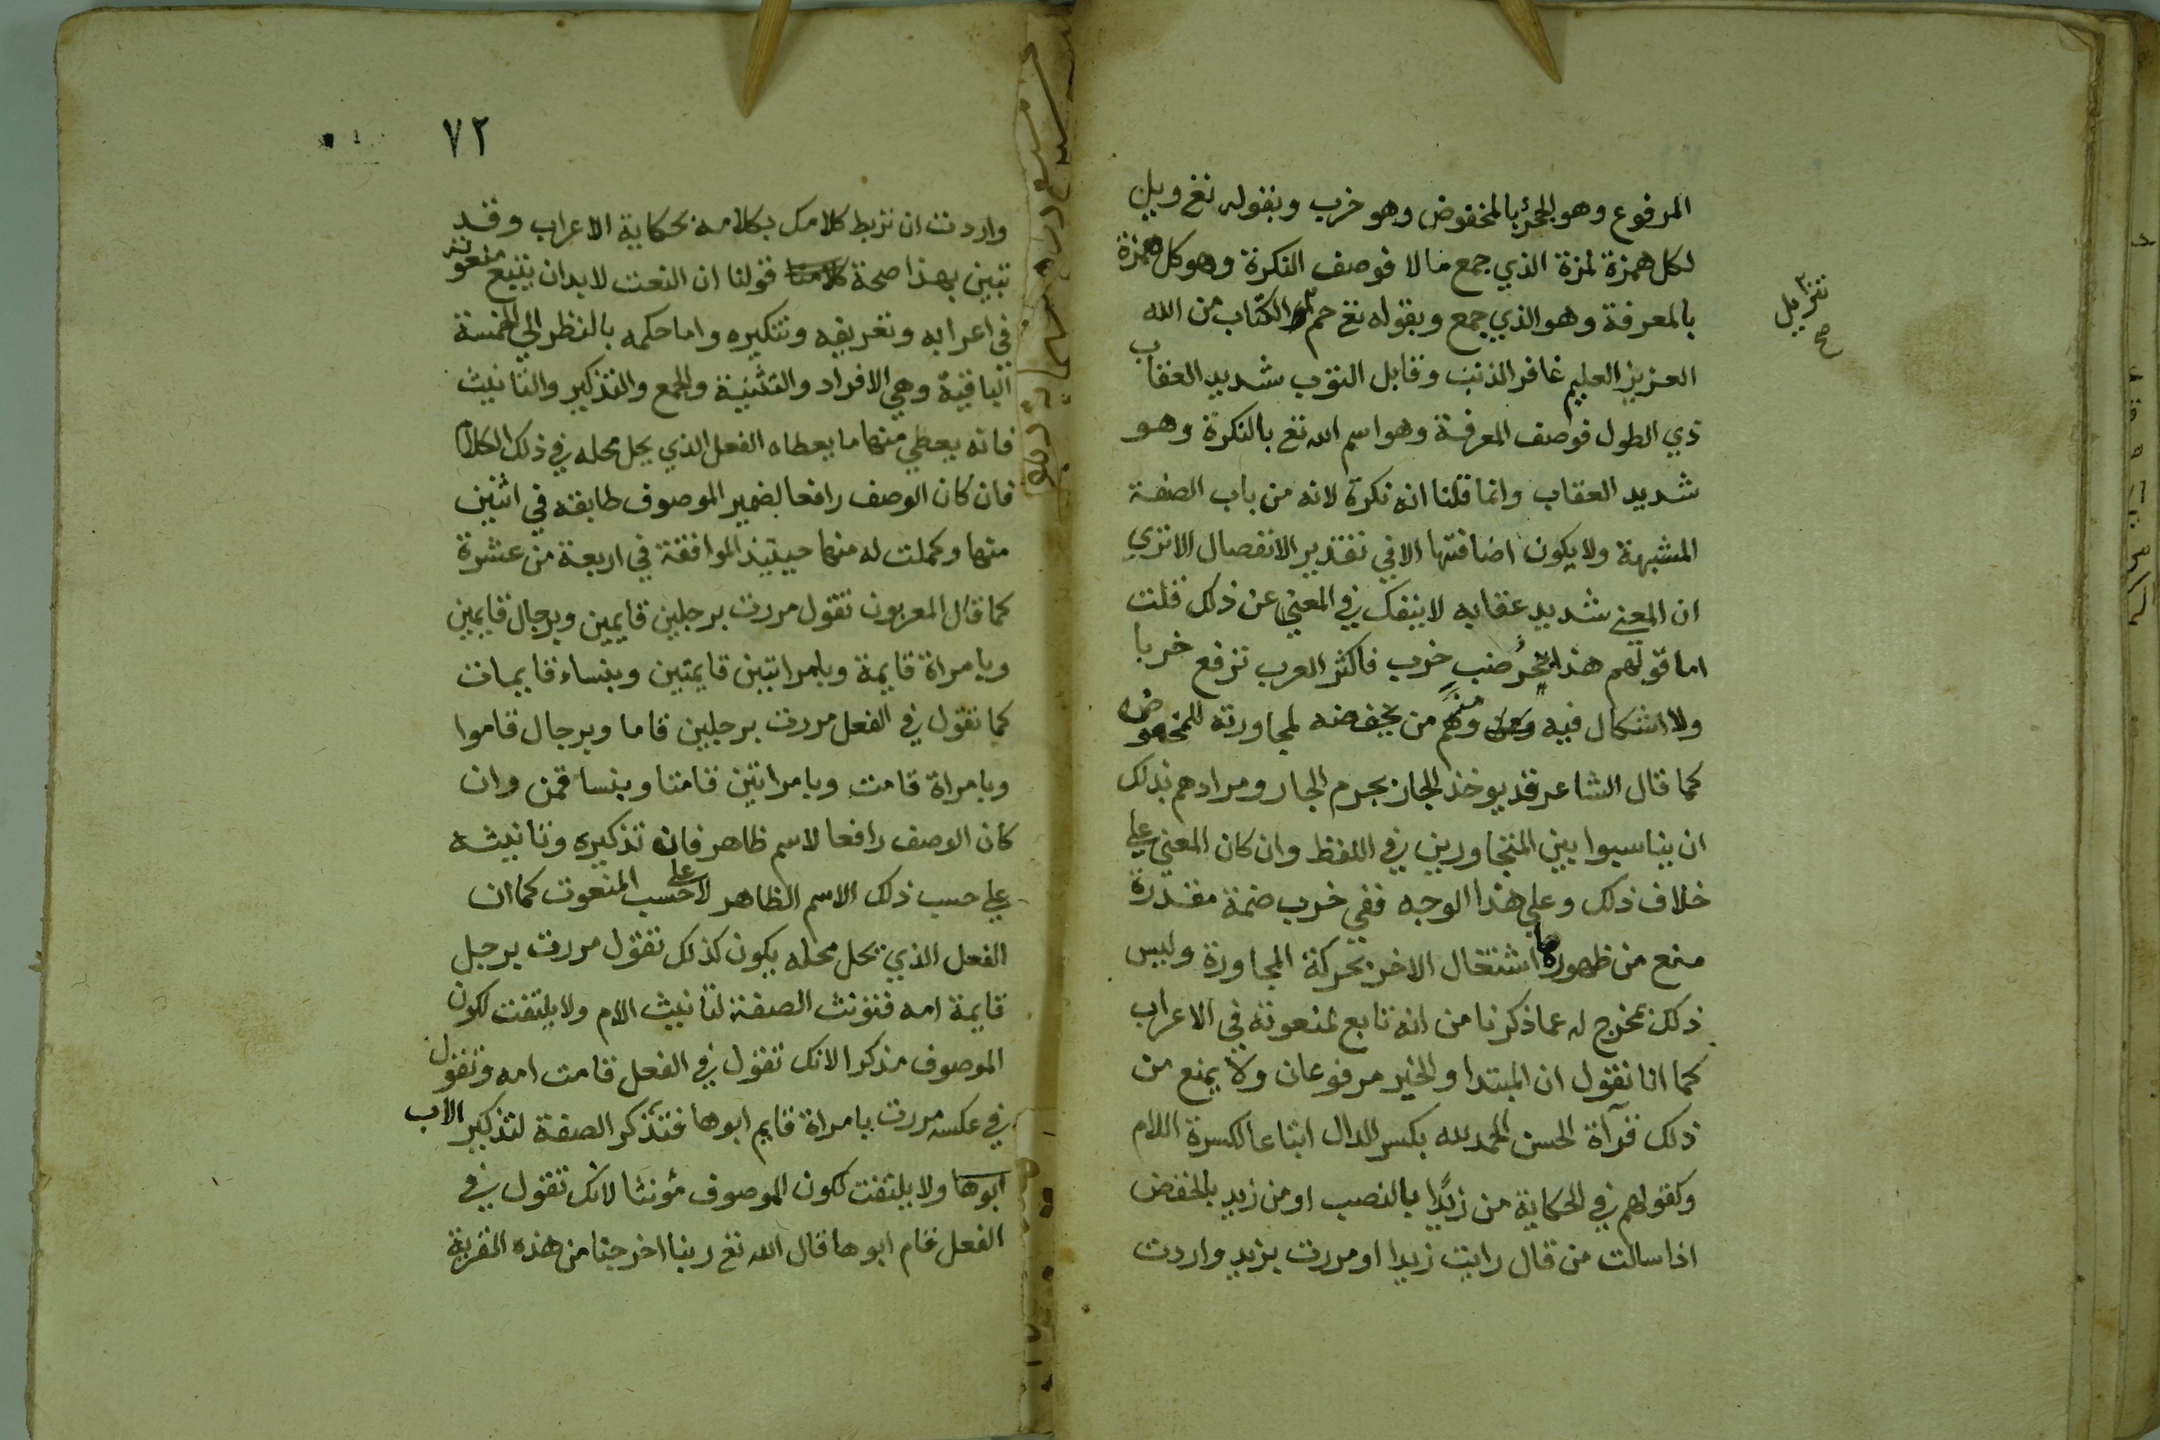 المرفوع وهو الجحر بالمخفوض وهو خرب وبقوله تع ويل
لكل همزة لمزة الذي جمع مالا فوصف النكرة وهو كل همزة
بالمعرفة وهو الذي جمع وبقوله تع حم الكتاب من الله
تنزيل
صح
العزيز العليم غافر الذنب وقابل التوب شديد العقاب
ذي الطول فوصف المعرفة وهو اسم الله تع بالنكرة وهو
شديد العقاب وانما قلنا انه نكرة لانه من باب الصفة
المشبهة ولا يكون اضافتها الا في تقدير الانفصال الا تري
ان المعني شديد عقابه لا ينفك في المعني عن ذلك قلت
اما قولهم هذا جحرُ ضبٍ خرب فاكثر العرب ترفع خربا
ولا اشكال فيه ومنهم من يخفضه لمجاورته للمخفوض
كما قال الشاعر قد يوخذ الجار بجرم الجار ومرادهم بذلك
ان يناسبوا بين المتجاورين في اللفظ وان كان المعني علي
خلاف ذلك وعلي هذا الوجه ففي خرب ضمة مقدرة
منع من ظهورها اشتغال الاخر بحركة المجاورة وليس
ذلك بمخرج له عما ذكرنا من انه تابع لمنعوته في الاعراب
كما انا نقول ان المبتدا والخبر مرفوعان ولا يمنع من
ذلك قرآة الحسن الحمد لله بكسر الدال اتباعا لكسرة اللام
وكقولهم في الحكاية من زيدًا بالنصب او من زيد بالخفض
اذا سالت من قال رايت زيدا او مررت بزيد واردت
٧٢
واردت ان تربط كلامك بكلامه بحكاية الاعراب وقد
تبين بهذا صحة قولنا ان النعت لا بد ان يتبع منعوته
في اعرابه وتعريفه وتنكيره واما حكمه بالنظر الي الخمسة
الباقية وهي الافراد والتثنية والجمع والتذكير والتانيث
فانه يعطي منها ما يعطاه الفعل الذي يحل محله في ذلك الكلام
فان كان الوصف رافعا لضمير الموصوف طابقه في اثنين
منها وكملت له منها حينيذ الموافقة في اربعة من عشرة
كما قال المعربون تقول مررت برجلين قايمين وبرجال قايمين
وبامراة قايمة وبامراتين قايمتين وبنساء قايمات
كما تقول في الفعل مررت برجلين قاما وبرجال قاموا
وبامراة قامت وبامراتين قامتا وبنسا قمن وان
كان الوصف رافعا لاسم ظاهر فان تذكيره وتانيثه
علي حسب ذلك الاسم الظاهر لا علي حسب المنعوت كما ان
الفعل الذي يحل محله يكون كذلك تقول مررت برجل
قايمة امه فتؤنث الصفة لتانيث الام ولا يلتفت لكون
الموصوف مذكرا لانك تقول في الفعل قامت امه وتقول
في عكسه مررت بامراة قايم ابوها فتذكر الصفة لتذكير الاب
ابوها ولا يلتفت لكون الموصوف مؤنثا لانك تقول في
الفعل قام ابوها قال الله تع ربنا اخرجنا من هذه القرية